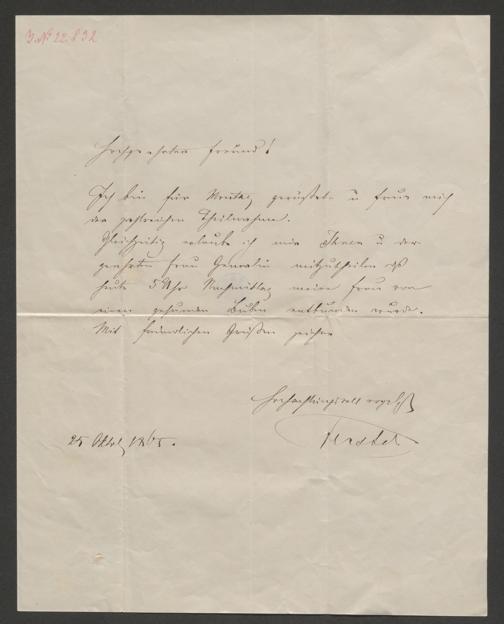 J.N. 22.832
Hochgeehrter Freund!
Ich bin für Montag gerüstet u freue mich
der zahlreichen Theilnahme.
Gleichzeitig erlaube ich mir Ihnen u der
geehrten Frau Generalin mitzutheilen daß
heute 5 Uhr Nachmittag meine Frau von
einem gesunden Buben entbunden wurde.
Mit freundlichen Grüßen zeichne
Hochachtungsvoll
25 Oktob 1865.